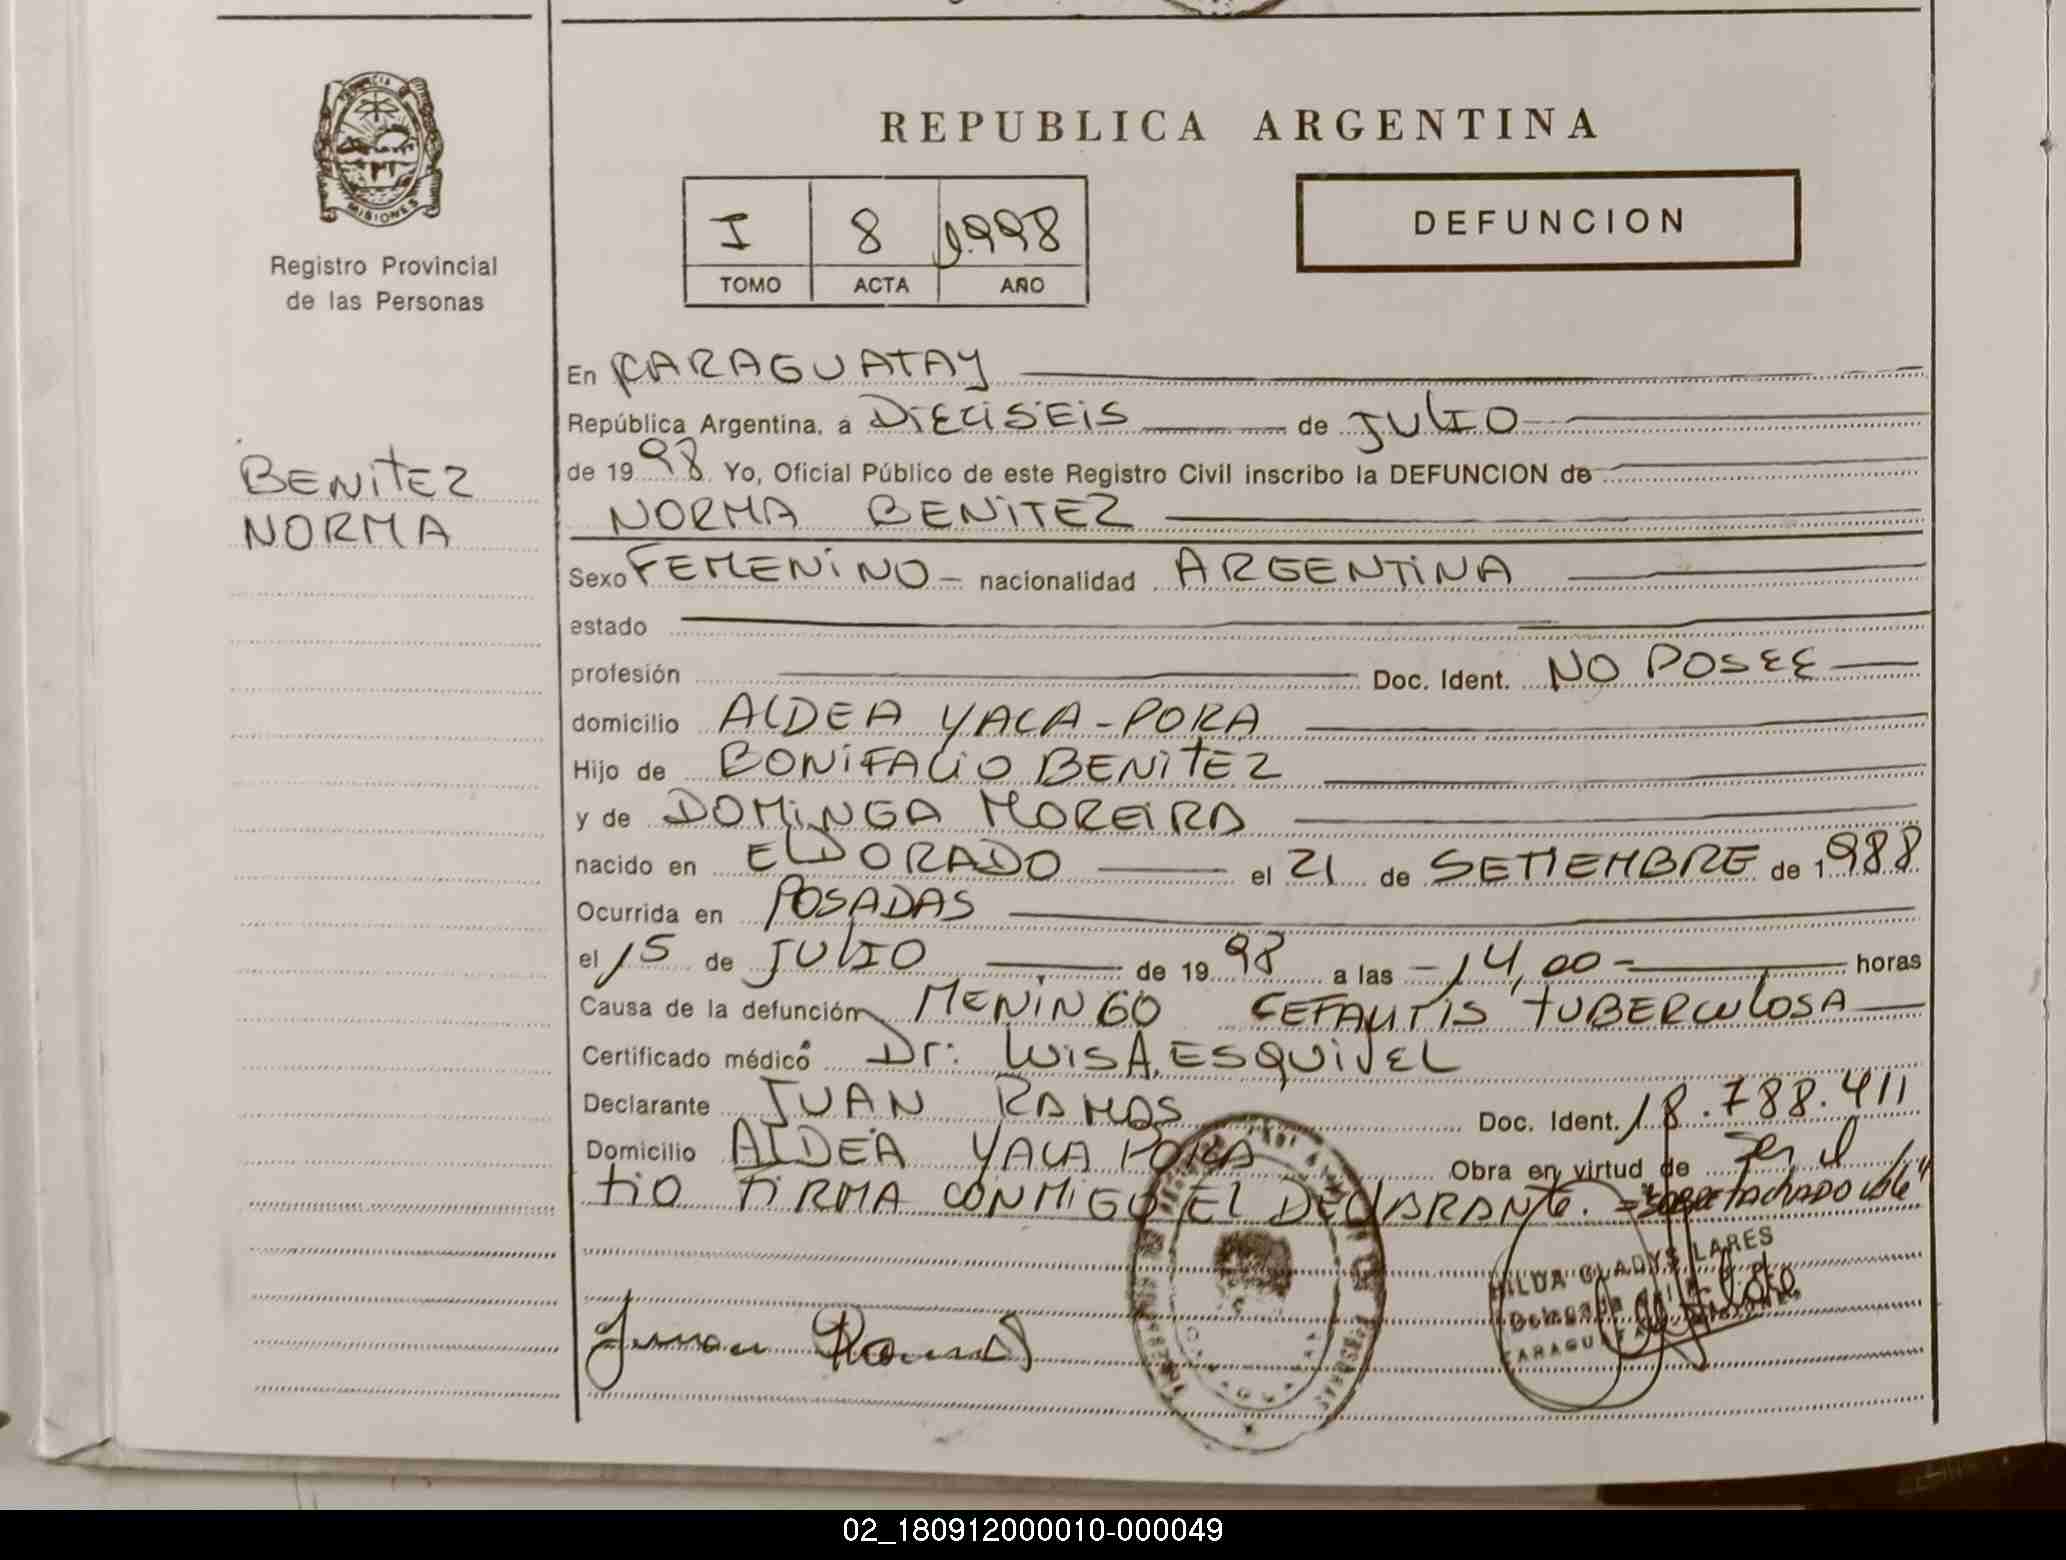 PROVINCIA
MISIONES
Registro Provincial
de las Personas
BENITEZ
NORMA
REPUBLICA ARGENTINA
I 8 1998
TOMO ACTA AÑO
DEFUNCION
En CARAGUATAY
República Argentina, a DIECISEIS de JULIO
de 1998 Yo, Oficial Público de este Registro Civil inscribo la DEFUNCION de
NORMA BENITEZ
Sexo FEMENINO - nacionalidad ARGENTINA
estado
profesión Doc. Ident. NO POSEE
domicilio ALDEA YACA-PORA
Hijo de BONIFACIO BENITEZ
y de DOMINGA MOREIRA
nacido en ELDORADO el 21 de SETIEMBRE de 1988
Ocurrida en POSADAS
el 15 de JULIO de 1998 a las -14,00- horas
Causa de la defunción MENINGO CEFALITIS TUBERCULOSA
Certificado médico Dr: LUIS A. ESQUIVEL
Declarante JUAN RAMOS Doc. Ident. 18.788.411
Domicilio ALDEA YACA PORA Obra en virtud de ser el
TIO FIRMA CONMIGO EL DECLARANTE. = "SOBRE TACHADO vale"
HILDA GLADYS LARES
Delegada
Juan Ramos
02_180912000010-000049